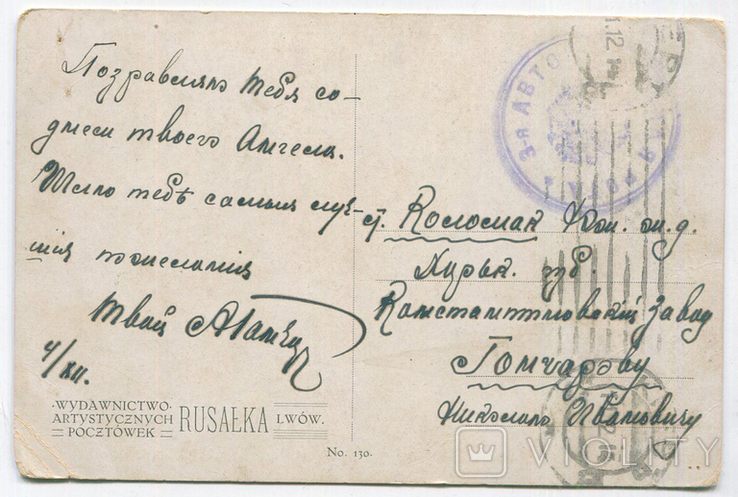 Поздравляю тебя со-
днем твоего Ангела.
Шлю тебѣ самыя луч-
шiя пожелания
Твой
4/XII.
ст. Коломак Юж. ж. д.
Харьк. губ.
Константиновскiй Завод
Гончарову
Николаю Ивановичу
3-я АВТО
.12
WYDAWNICTWO
ARTYSTYCZNYCH
POCZTÓWEK
RUSAŁKA
LWÓW.
No. 130.
VIOLITY